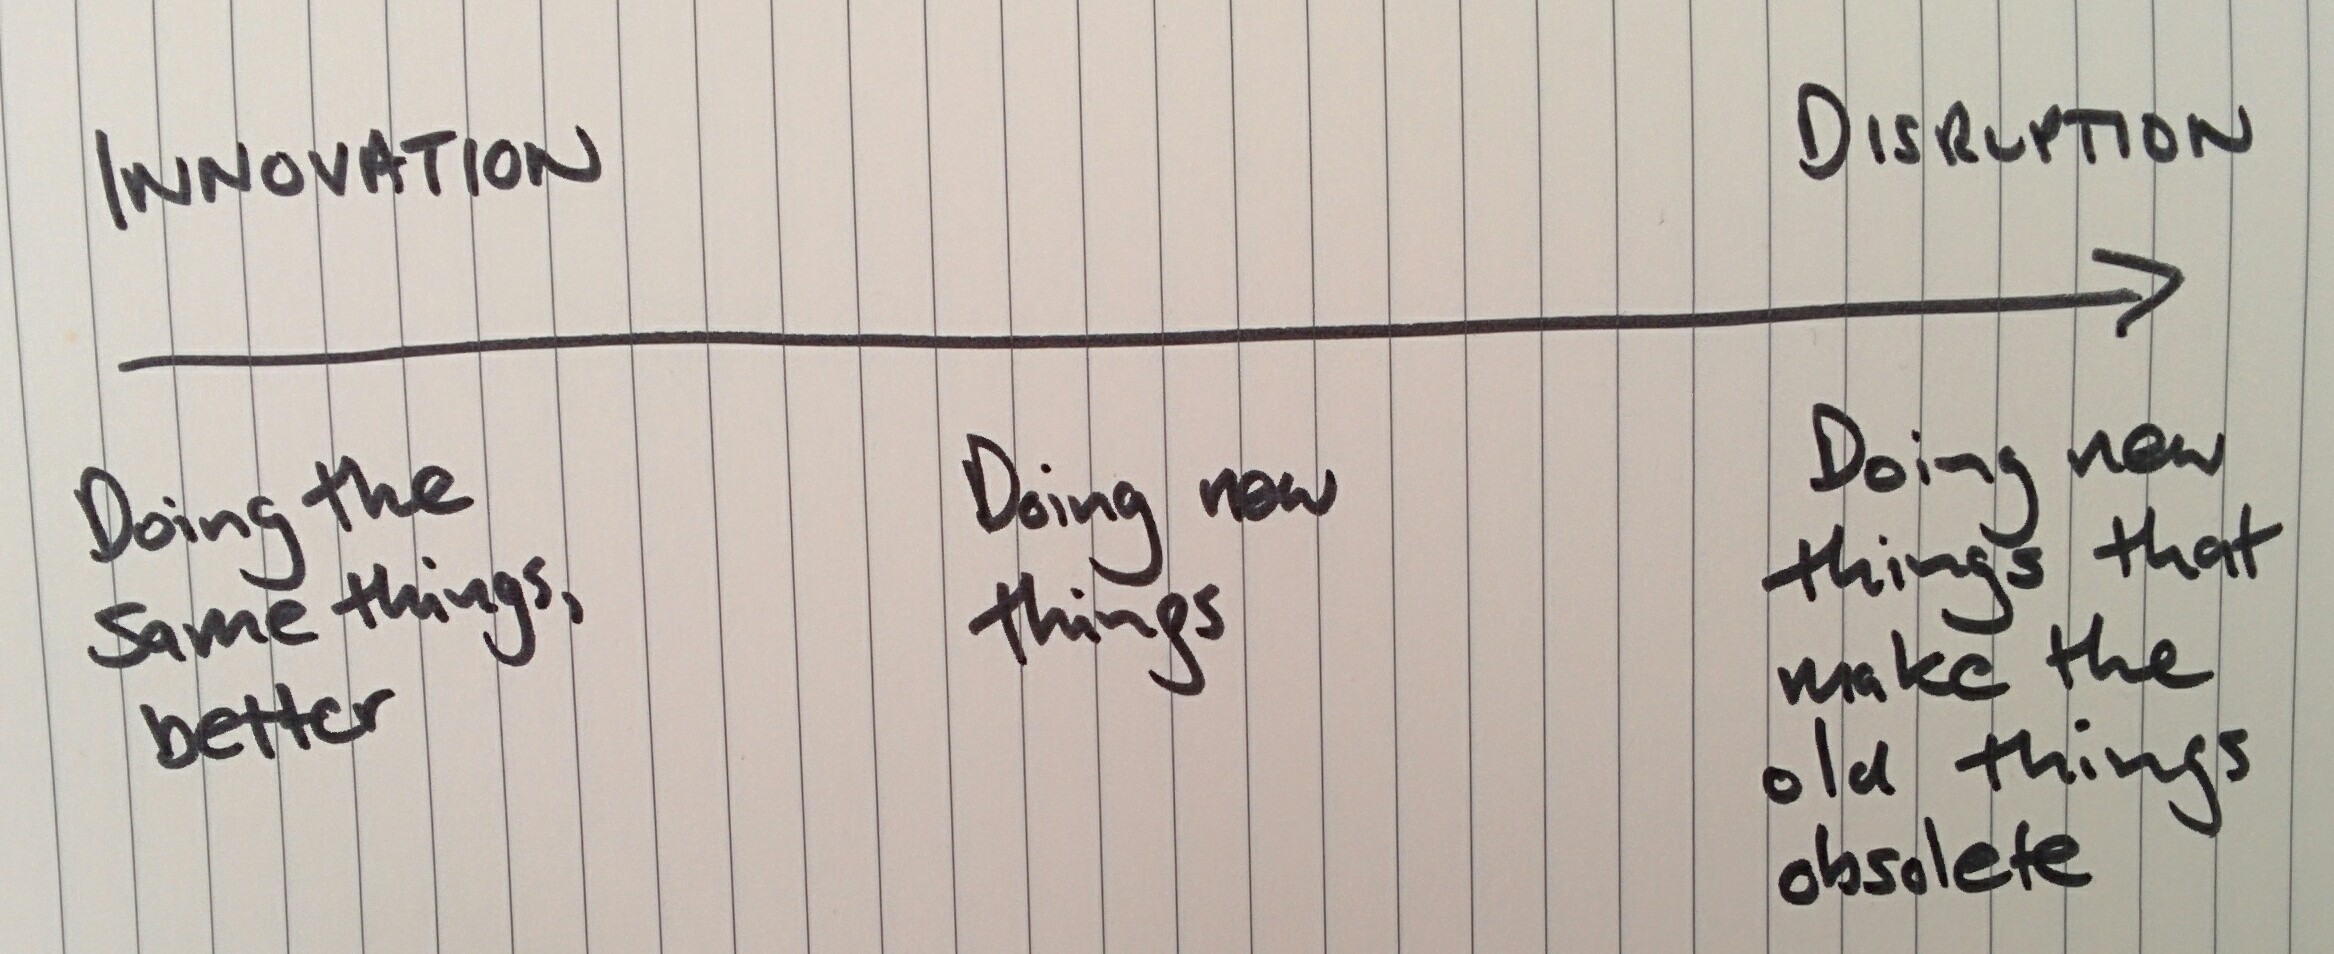 INNOVATION
DISRUPTION
Doing the
same things,
better
Doing new
things
Doing new
things that
make the
old things
obsolete